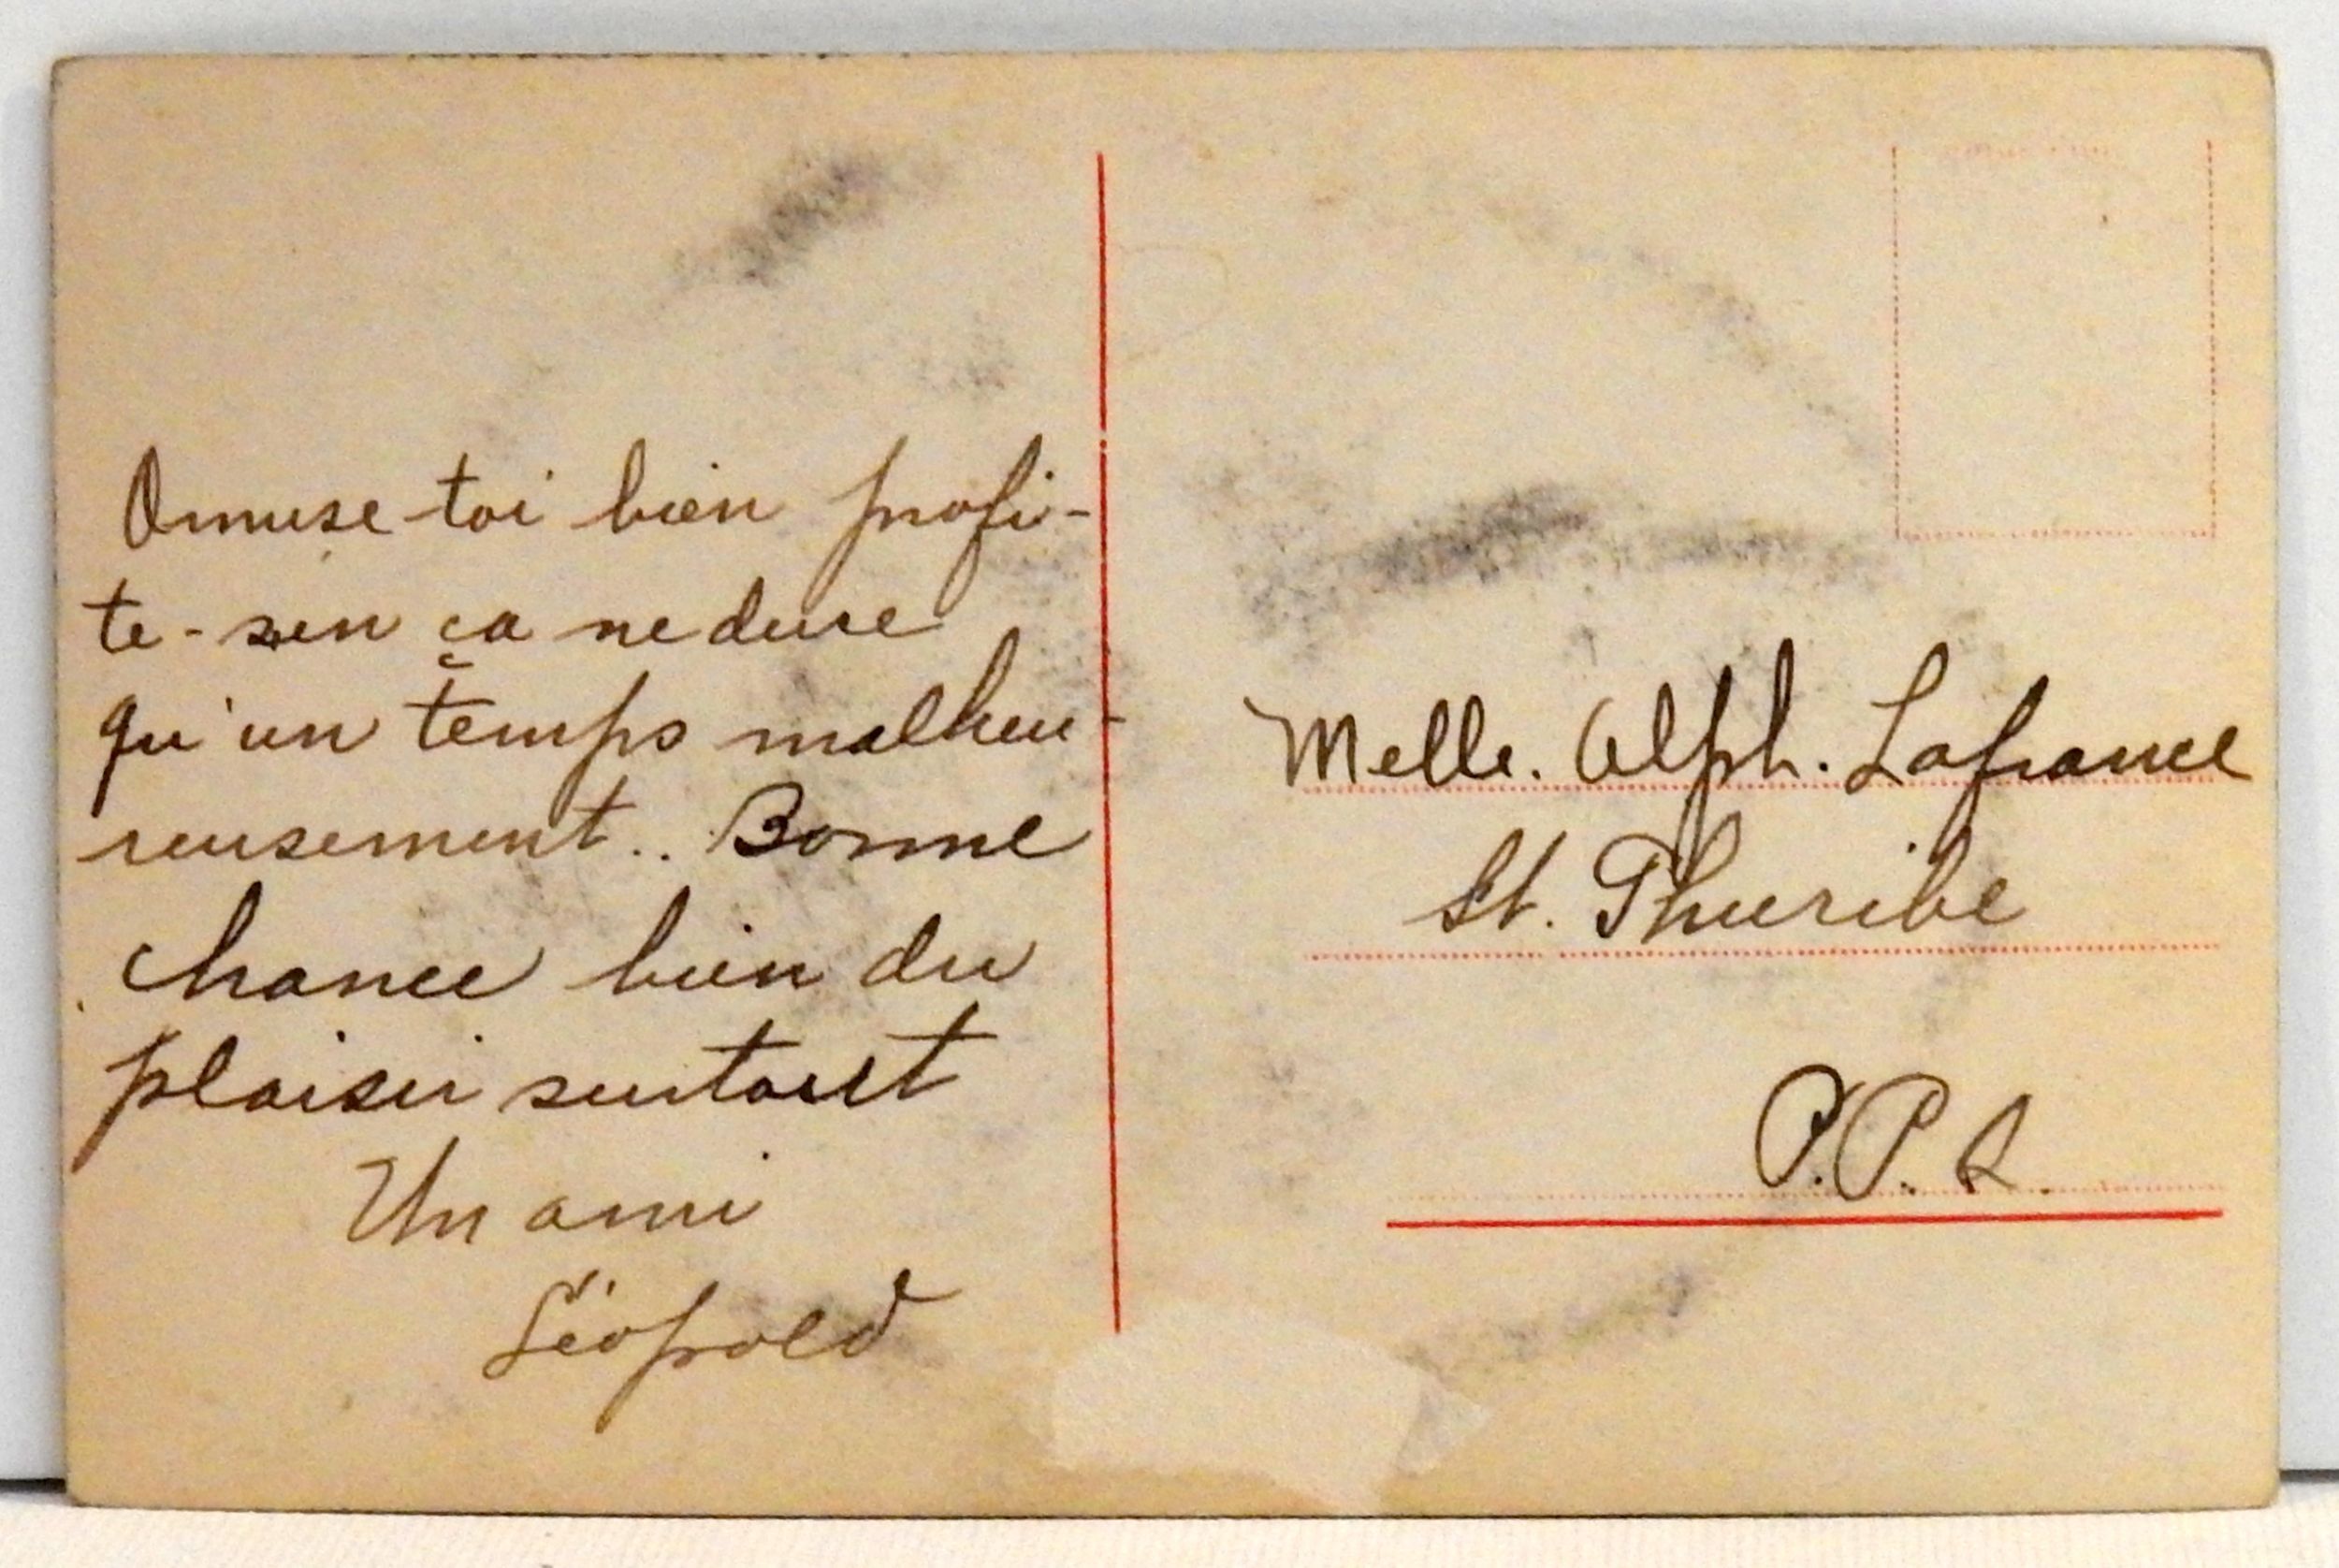 Amuse-toi bien profi-
te-sen ça ne dure
qu'un temps malheu-
reusement.. Bonne
chance bien du
plaisir surtout
Un ami
Léopold
Melle. Alph. Lafrance
St. Thuribe
P.P.